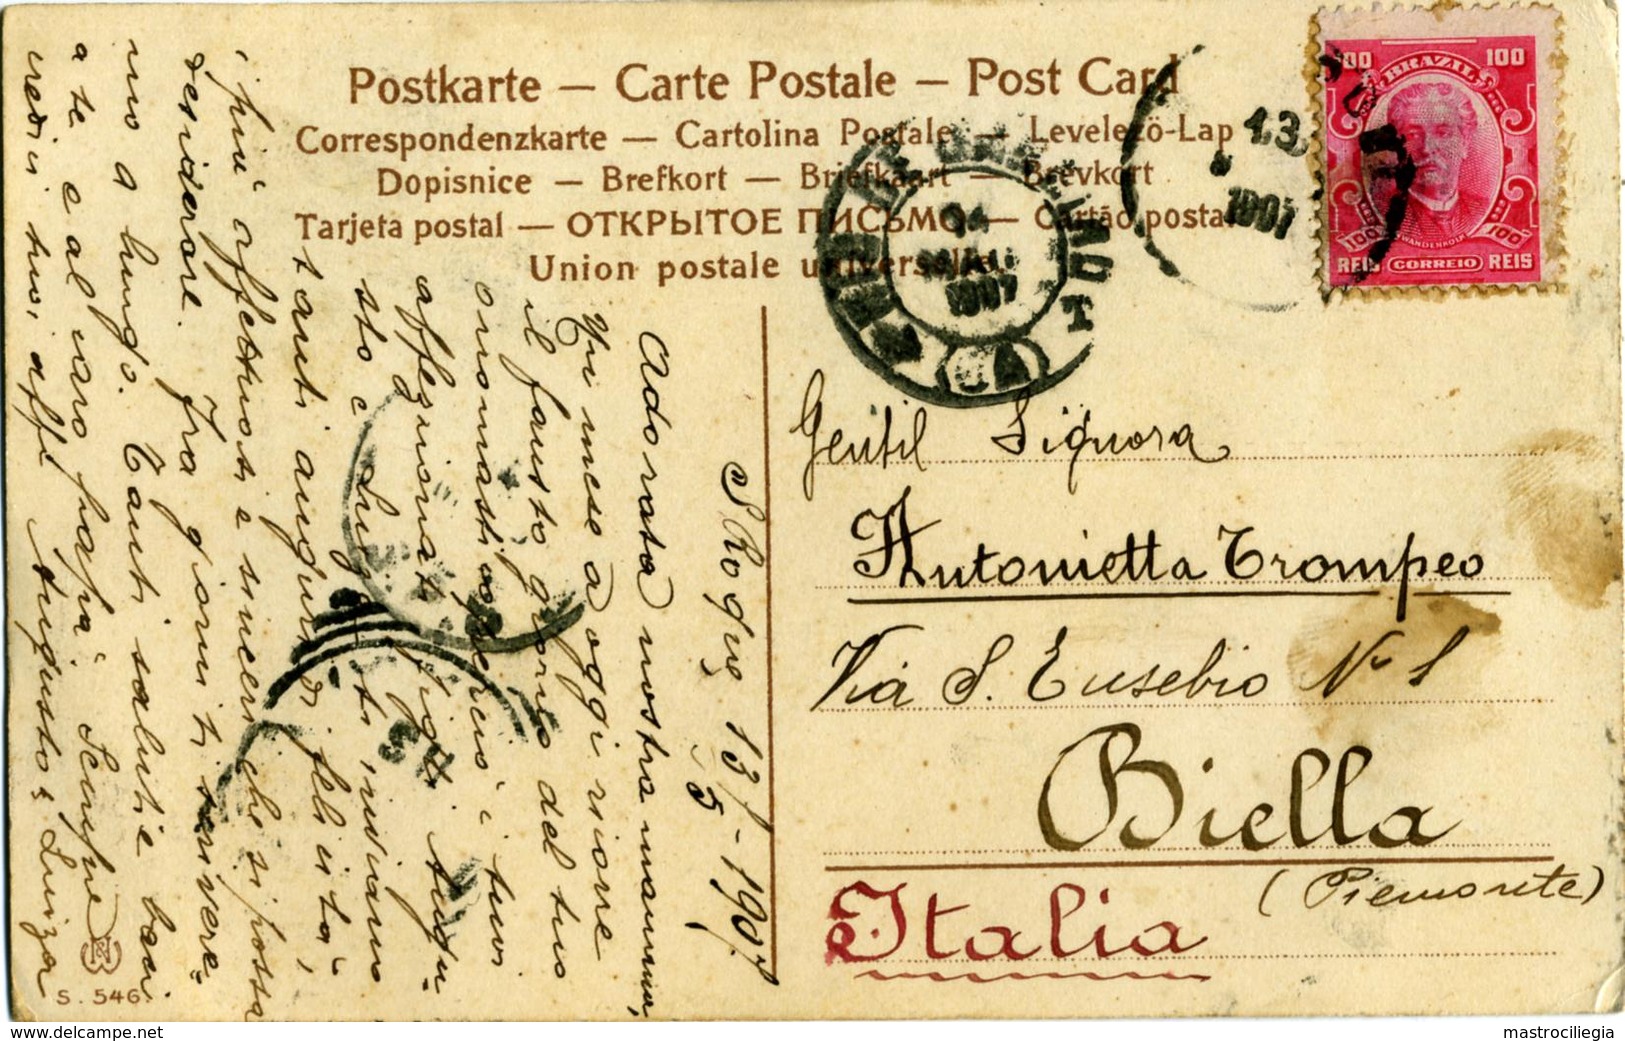 Postkarte — Carte Postale — Post Card
Correspondenzkarte — Cartolina Postale — Levelező-Lap
Dopisnice — Brefkort — Briefkaart — Brevkort
Tarjeta postal — ОТКРЫТОЕ ПИСЬМО — Cartão postal
Union postale universelle
100 100
BRAZIL
WANDENKOLK
100 100
REIS CORREIO REIS
13
1907
14
1907
S. Roque 13/5-1907
Adorata nostra mamma,
Un mese a oggi ricorre
il fausto giorno del tuo
onomastico perciò i tuoi
affezionati figli Augu-
sto e Luigia ti inviano
tanti auguri di felicità,
i più affettuosi e sinceri che si possa
desiderare. Fra giorni ti scrivere-
mo a lungo. Tanti saluti e baci
a te e al caro papà. Sempre
credi i tuoi affi Augusto e Luiza
Gentil Signora
Antonietta Trompeo
Via S. Eusebio No 1
Biella
(Piemonte)
Italia
S. 546.
http://www.delcampe.net
mastrociliegia